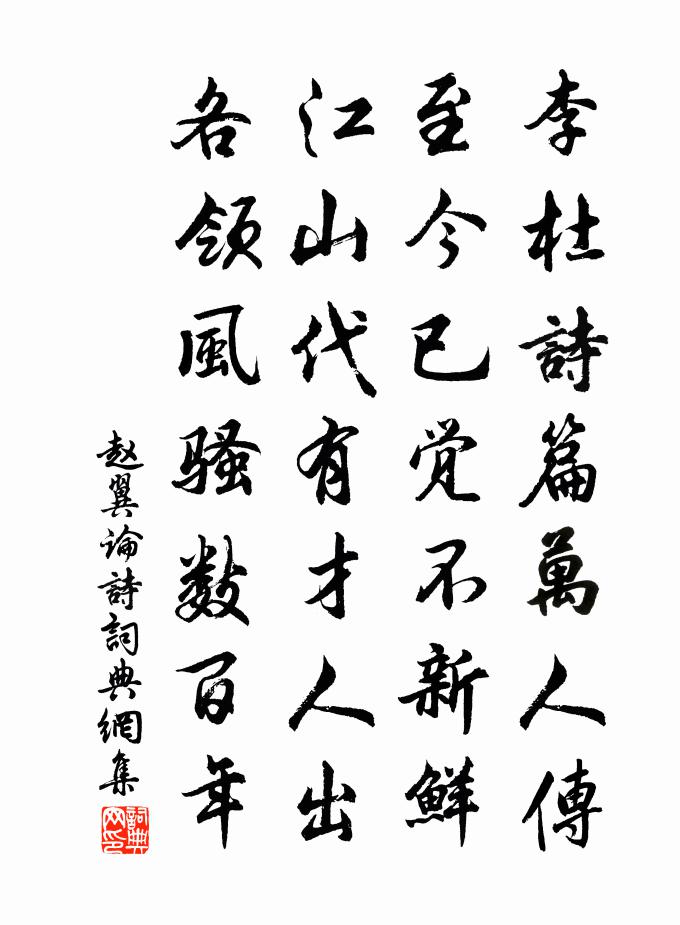 李杜詩篇萬人傳
至今已觉不新鮮
江山代有才人出
各领風骚数百年
赵翼论詩詞典網集
詞典网印